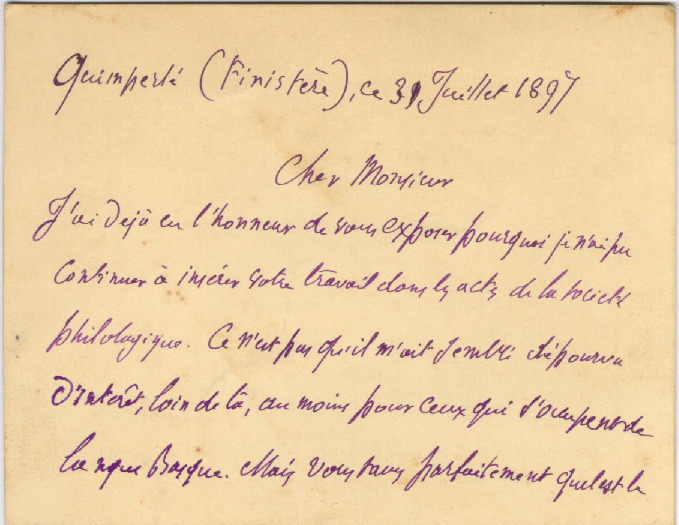 Quimperlé (Finistère), ce 31 Juillet 1897
Cher Monsieur
J'ai Dejà eu l'honneur de vous exposer pourquoi je n'ai pu
Continuer à insérer votre travail dans les actes de la société
philologique. Ce n'est pas qu'il m'ait semblé dépourvu
D'interêt, loin de là, au moins pour ceux qui s'occupent de
langue Basque. Mais vous savez parfaitement quel est le